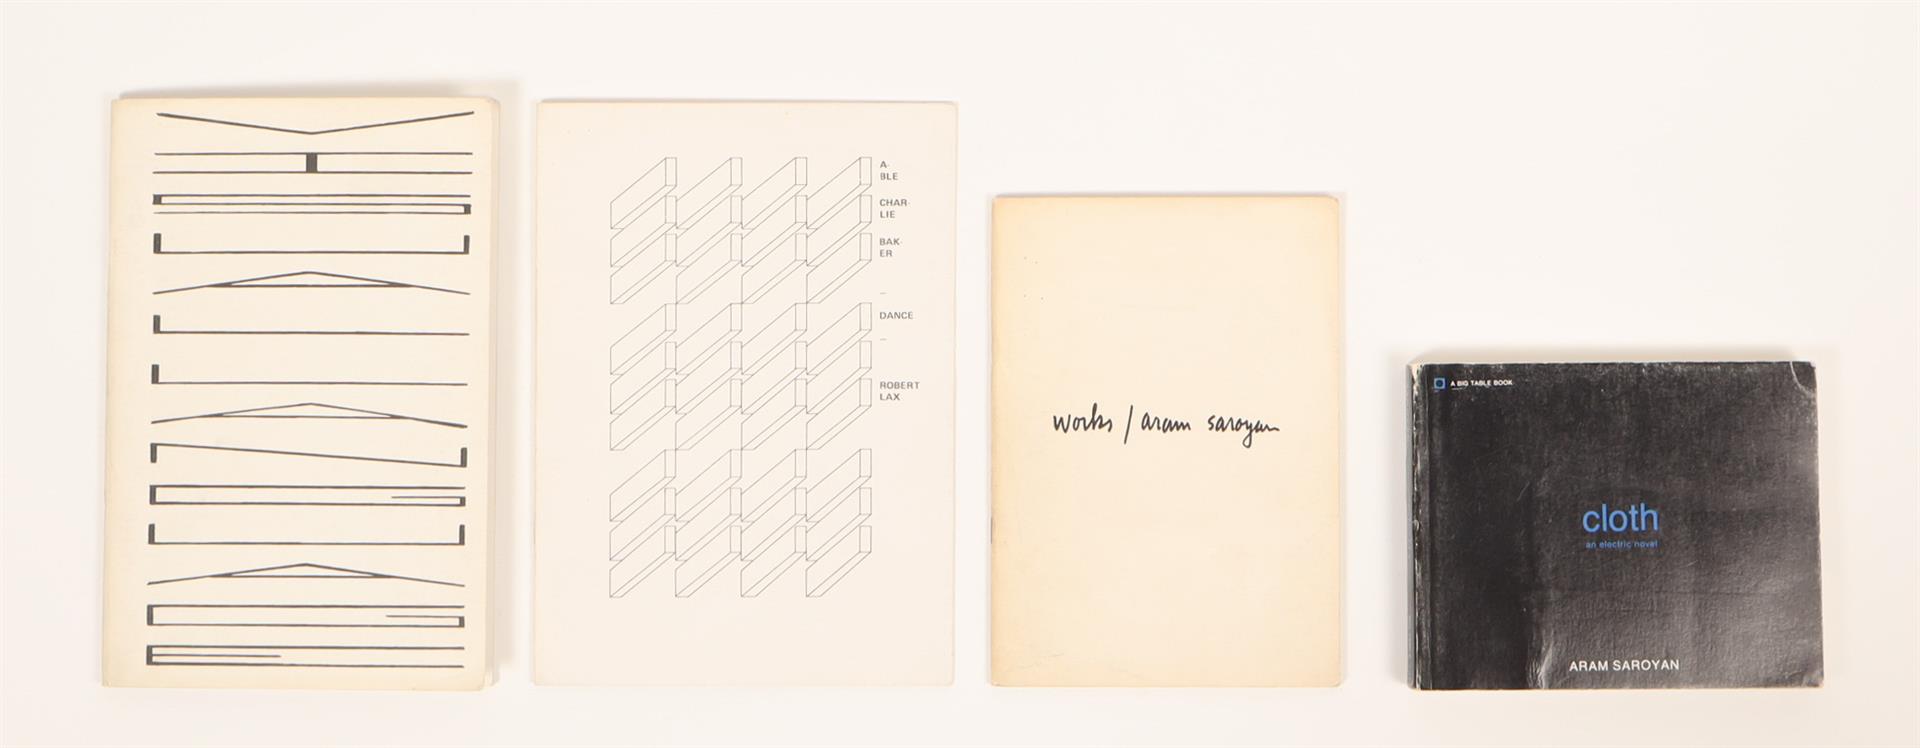 A-
BLE
CHAR-
LIE
BAK-
ER
—
DANCE
—
ROBERT
LAX
works / aram saroyan
A BIG TABLE BOOK
cloth
an electric novel
ARAM SAROYAN